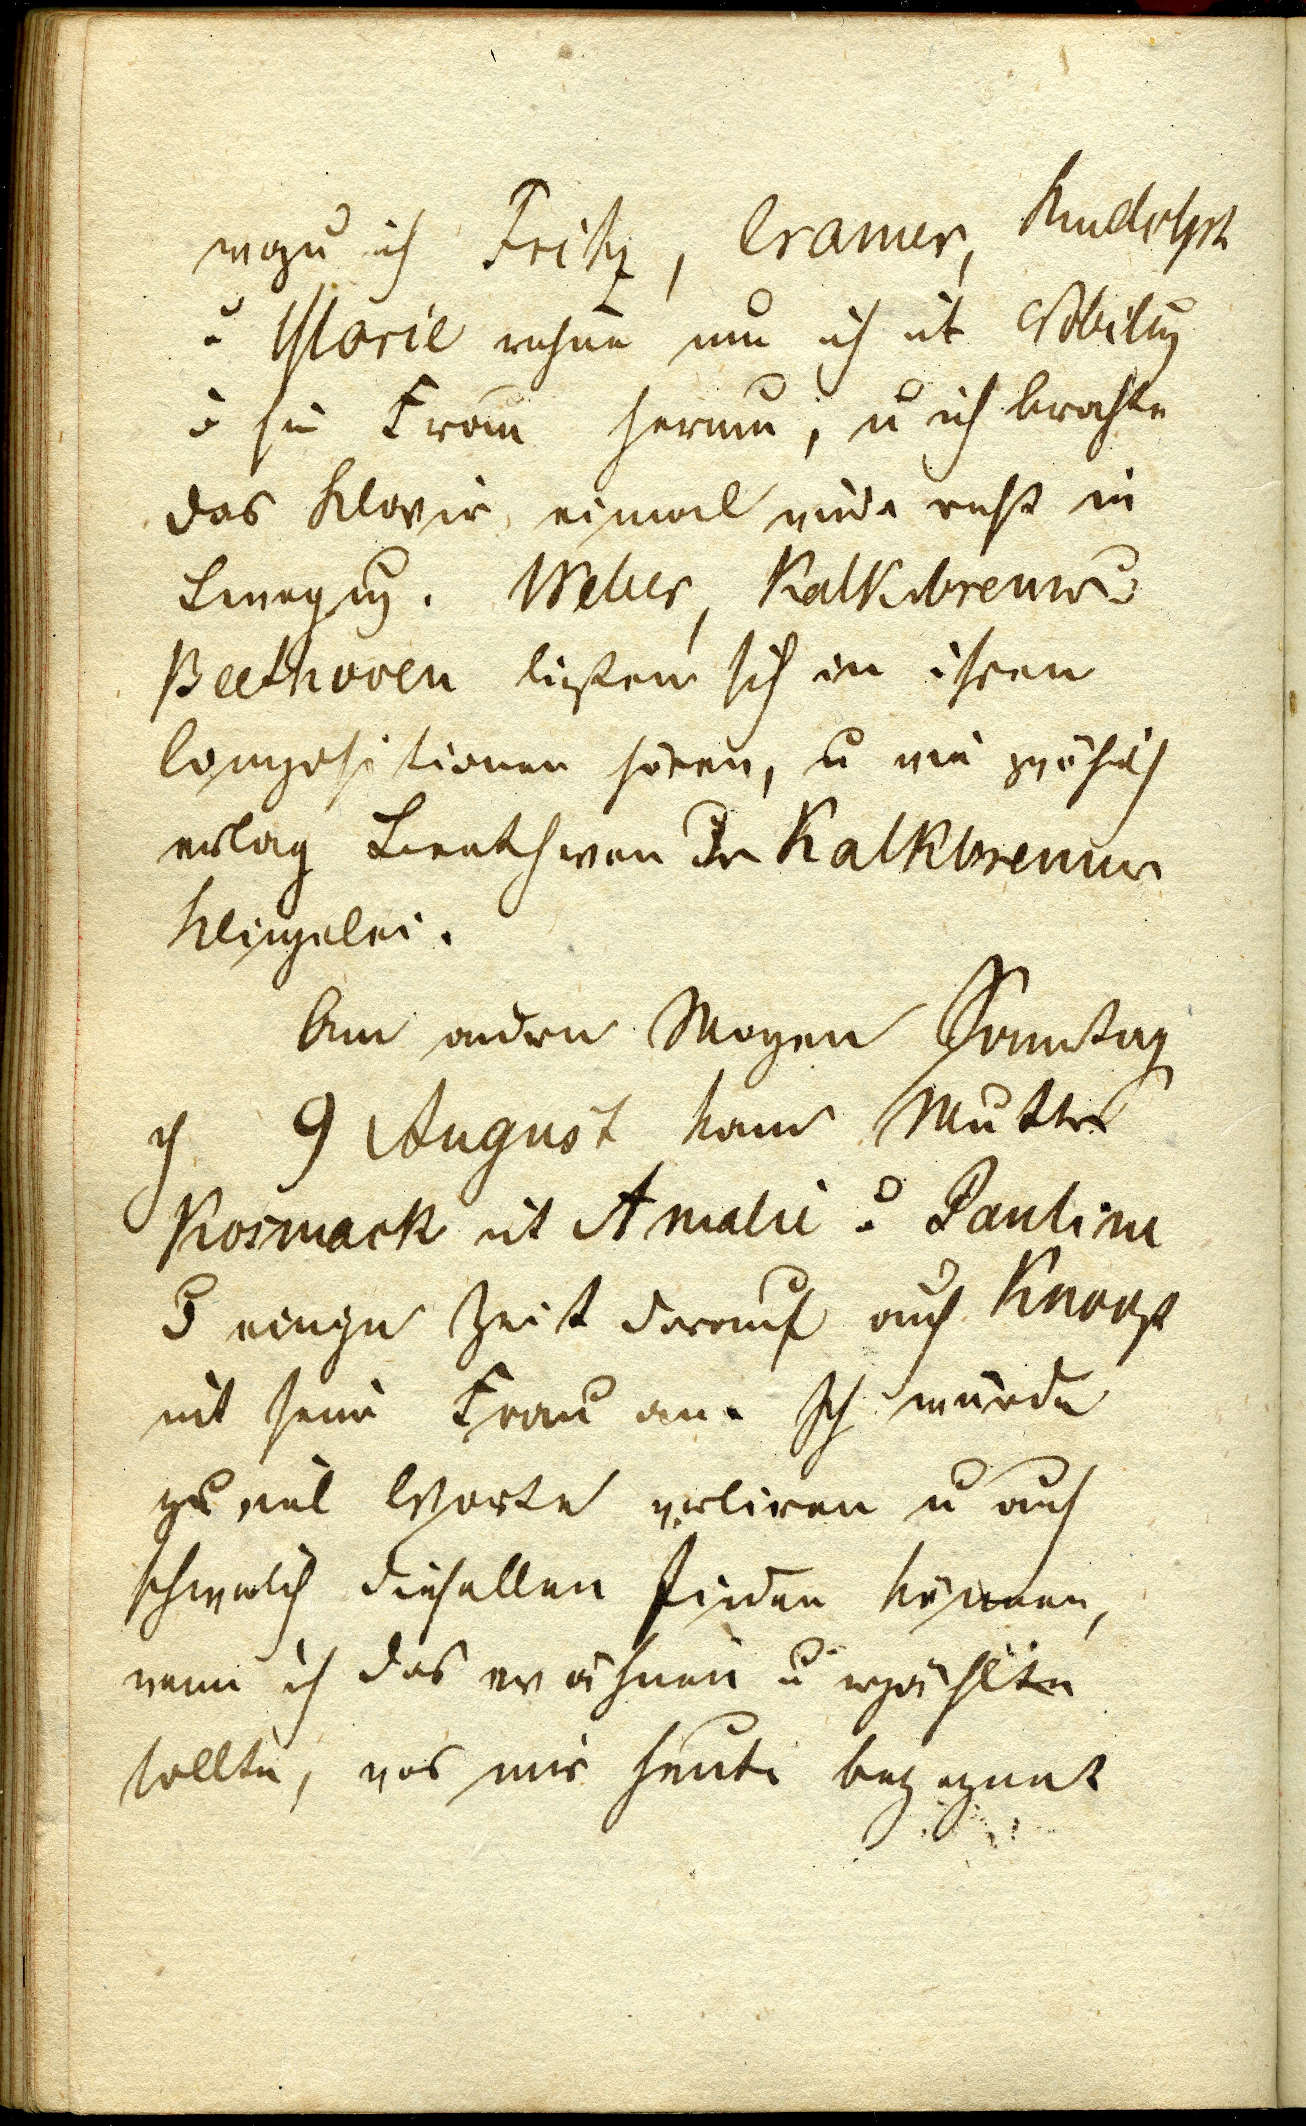 wozu ich Fritz, Cramer, Rudolph
u Marie rechne nun ich mit Nobiling
u sr Frau herum, u ich brachte
das Klavir einmal wieder recht in
Bewegung. Weber, Kalkbrenner u
Beethoven ließen sich in ihren
Compositionen hören, u wie gewöhnlich
erlag Beethoven der Kalkbrenner
Klingelei.
Am andern Morgen Sonntag
9 August kam Mutter
Kosmack mit Amalie u Pauline
u einige Zeit darauf auch Knoop
mit seiner Frau an. Ich würde
zu viel Worte verliren u auch
schwerlich dieselben finden können,
wenn ich das erwähnen u erzählen
sollte, was mir heute begegnet